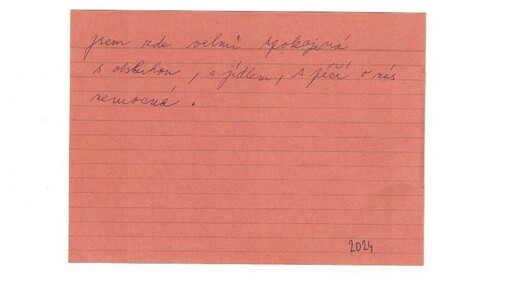 jsem zde velmi spokojená
s obsluhou, s jídlem, s péčí o nás
nemocné.
2024